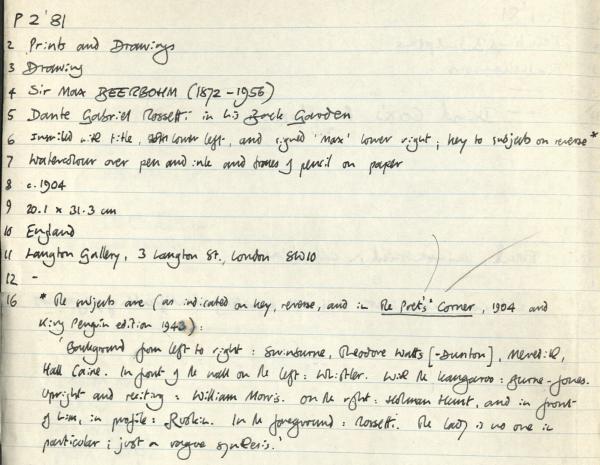 P 2'81
2 Prints and Drawings
3 Drawing
4 Sir Max BEERBOHM (1872-1956)
5 Dante Gabriel Rossetti in his Back Garden
6 Inscribed with title, lower left, and signed 'Max' lower right; key to subjects on reverse*
7 Watercolour over pen and ink and traces of pencil on paper
8 c.1904
9 20.1 x 31.3 cm
10 England
11 Langton Gallery, 3 Langton St., London SW10
12 -
16 * The subjects are (as indicated on key, reverse, and in The Poet's' Corner, 1904 and
King Penguin edition 1943):
'Background from left to right: Swinburne, Theodore Watts [-Dunton], Meredith,
Hall Caine. In front of the wall on the left: Whistler. With the kangaroo: Burne-Jones.
Upright and reciting: William Morris. On the right: Holman Hunt, and in front
of him, in profile: Ruskin. In the foreground: Rossetti. The lady is no one in
particular; just a vague synthesis.'